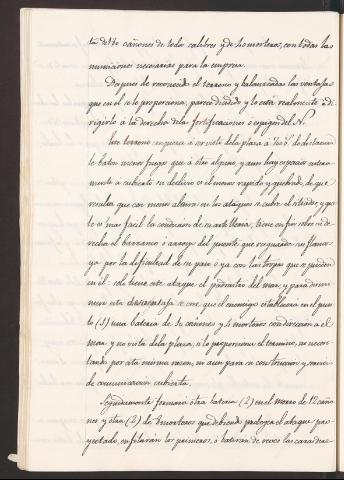 ta de 120 cañones de todo calibre y de 40 morteros, con todas las
municiones necesarias para la empresa.
Despues de reconocido el terreno y balanceadas las ventajas
que en el se le proporciona, parece decidido y lo está realmente á di-
rigirlo á la derecha de la fortificacion ó espigon del N.
Este terreno empieza á ser visto de la plaza á 700 t. de distancia
le baten menos fuegos que á otro alguno, y aun hay espacios entera-
mente á cubierto su declivio es el menos rapido y quebrado, de que
resulta que con menos altura en los ataques se cubre el sitiador, y que
le es mas facil la conduccion de su artilleria; tiene en fin sobre su de-
recha el barranco ó arroyo del puente que resguarda su flanco
ya por la dificultad de su paso ó ya con las tropas que se pueden
en el: solo tiene este ataque el padrastro del mar; y para dismi-
nuir esta desventaja se cree que el enemigo establecerá en el pun-
to (1) una bateria de 30 cañones y 4 morteros con direccion á el
mar y no vista de la plaza, si lo proporciona el terreno, no necesi-
tando por esta misma razon, ni aun para su construccion y servicio
de comunicacion cubierta.
Seguidamente formará otra bateria (2) en el morro de 12 caño-
nes y otra (2) de 6 morteros que debiendo proteger el ataque pro-
yectado, enfilarán los primeros, ó batirán de reves las caras dere-